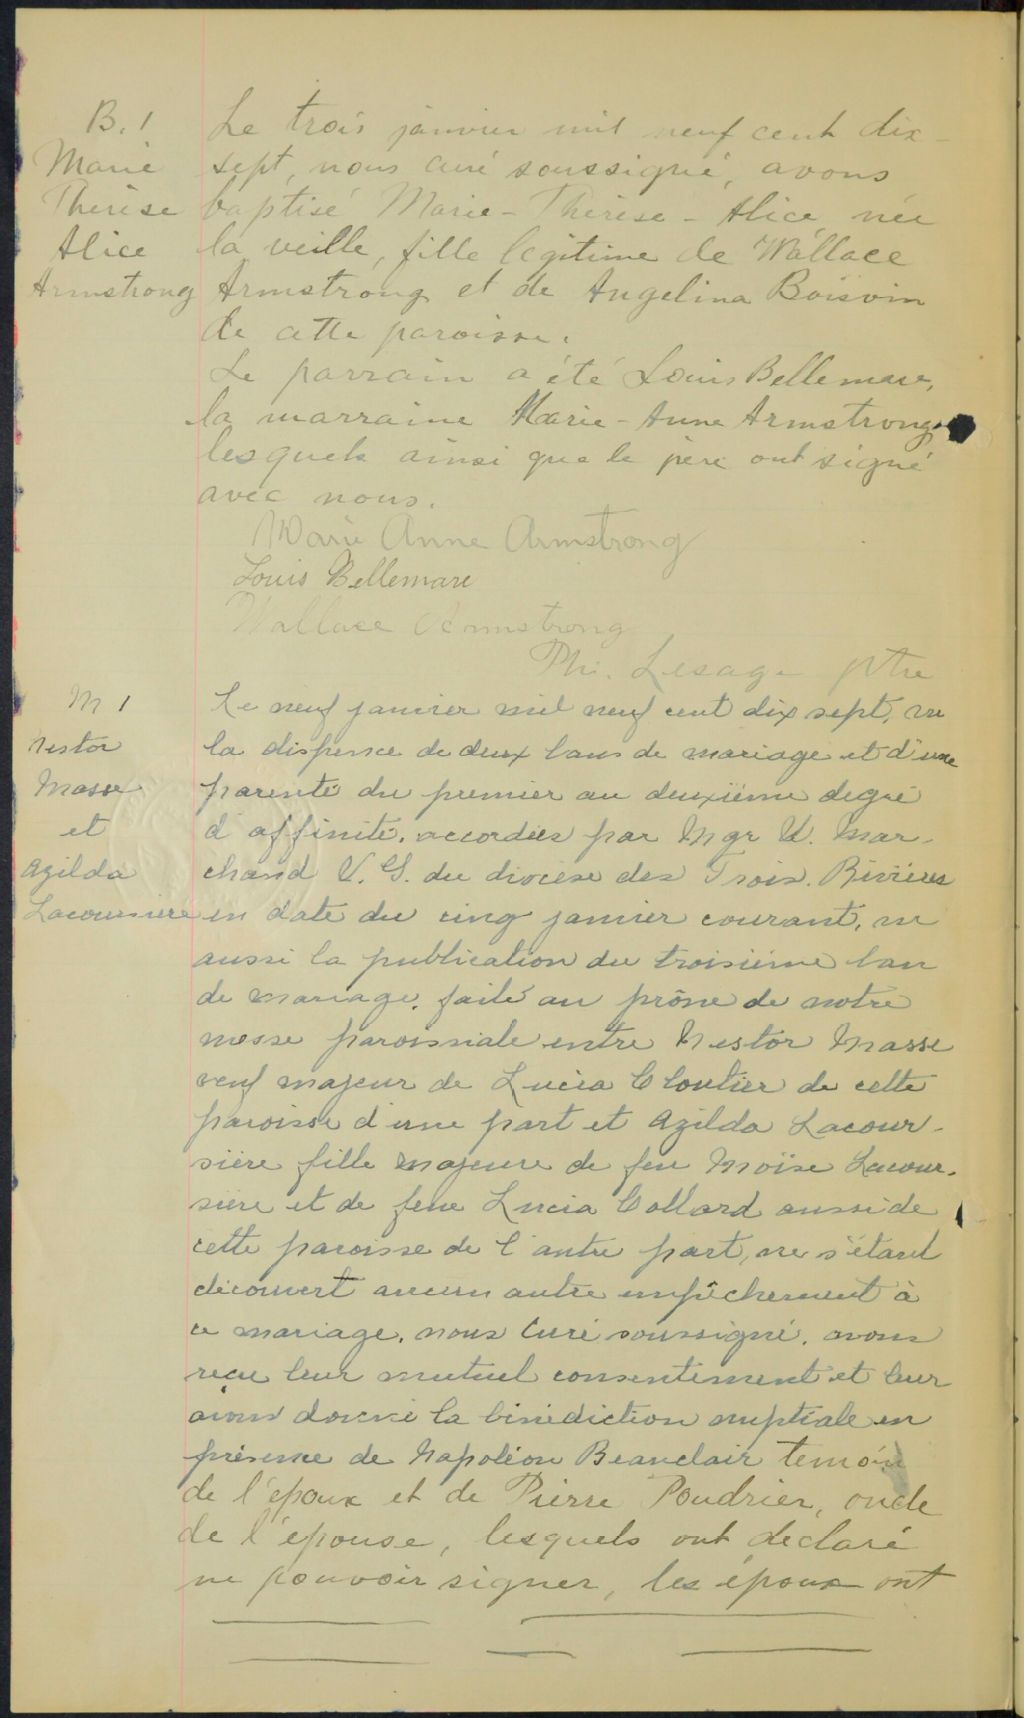 B. 1
Marie
Thérèse
Alice
Armstrong
Le trois janvier mil neuf cent dix-
sept, nous curé soussigné, avons
baptisé Marie-Thérèse-Alice née
la veille, fille légitime de Wallace
Armstrong et de Angelina Boisvin
de cette paroisse.
Le parrain a été Louis Bellemare,
la marraine Marie-Anne Armstrong
lesquels ainsi que le père ont signé
avec nous.
Marie Anne Armstrong
Louis Bellemare
Wallace Armstrong
Ph. Lesage ptre
M 1
Nestor
Masse
et
Azilda
Lacoursière
Le neuf janvier mil neuf cent dix sept, vu
la dispense de deux bans de mariage et d'une
parenté du premier au deuxième degré
d'affinité, accordées par Mgr U. Mar-
chand V. G. du diocèse des Trois. Rivières
en date du cinq janvier courant, vu
aussi la publication du troisième ban
de mariage, faite au prône de notre
messe paroissiale entre Nestor Masse
veuf majeur de Lucia Cloutier de cette
paroisse d'une part et Azilda Lacour-
sière fille majeure de feu Moïse Lacour-
sière et de feue Lucia Collard aussi de
cette paroisse de l'autre part, ne s'étant
découvert aucun autre empêchement à
ce mariage, nous Curé soussigné, avons
reçu leur mutuel consentement et leur
avons donné la bénédiction nuptiale en
présence de Napoléon Beauclair temoin
de l'époux et de Pierre Poudrier, oncle
de l'épouse, lesquels ont declaré
ne pouvoir signer, les époux ont